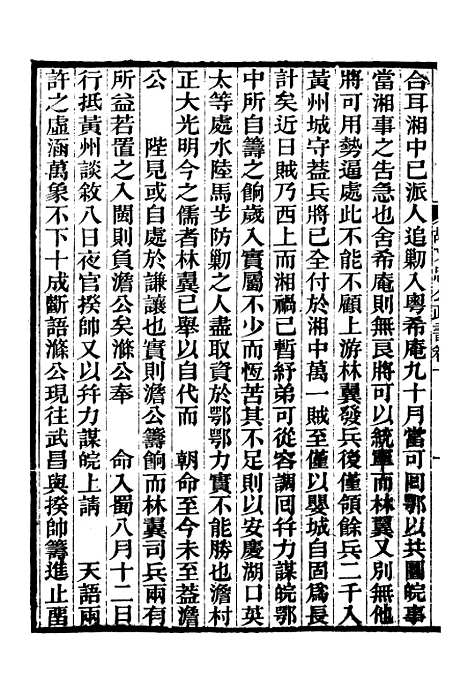 合耳湘中已派人追勦入粵希庵九十月當可囘鄂以共圖皖事
當湘事之吿急也舍希庵則無良將可以統軍而林翼又別無他
將可用勢逼處此不能不顧上游林翼發兵後僅領餘兵二千入
黃州城守益兵將已全付於湘中萬一賊至僅以嬰城自固爲長
計矣近日賊乃西上而湘禍已暫紓弟可從容調囘幷力謀皖鄂
中所自籌之餉歲入實屬不少而恆苦其不足則以安慶湖口英
太等處水陸馬步防勦之人盡取資於鄂鄂力實不能勝也澹村
正大光明今之儒者林翼已舉以自代而　朝命至今未至益澹
公　陛見或自處於謙讓也實則澹公籌餉而林翼司兵兩有
所益若置之入閩則負澹公矣滌公奉　命入蜀八月十二日
行抵黃州談敘八日夜官揆帥又以幷力謀皖上請　天語兩
許之虛涵萬象不下十成斷語滌公現往武昌與揆帥籌進止畱